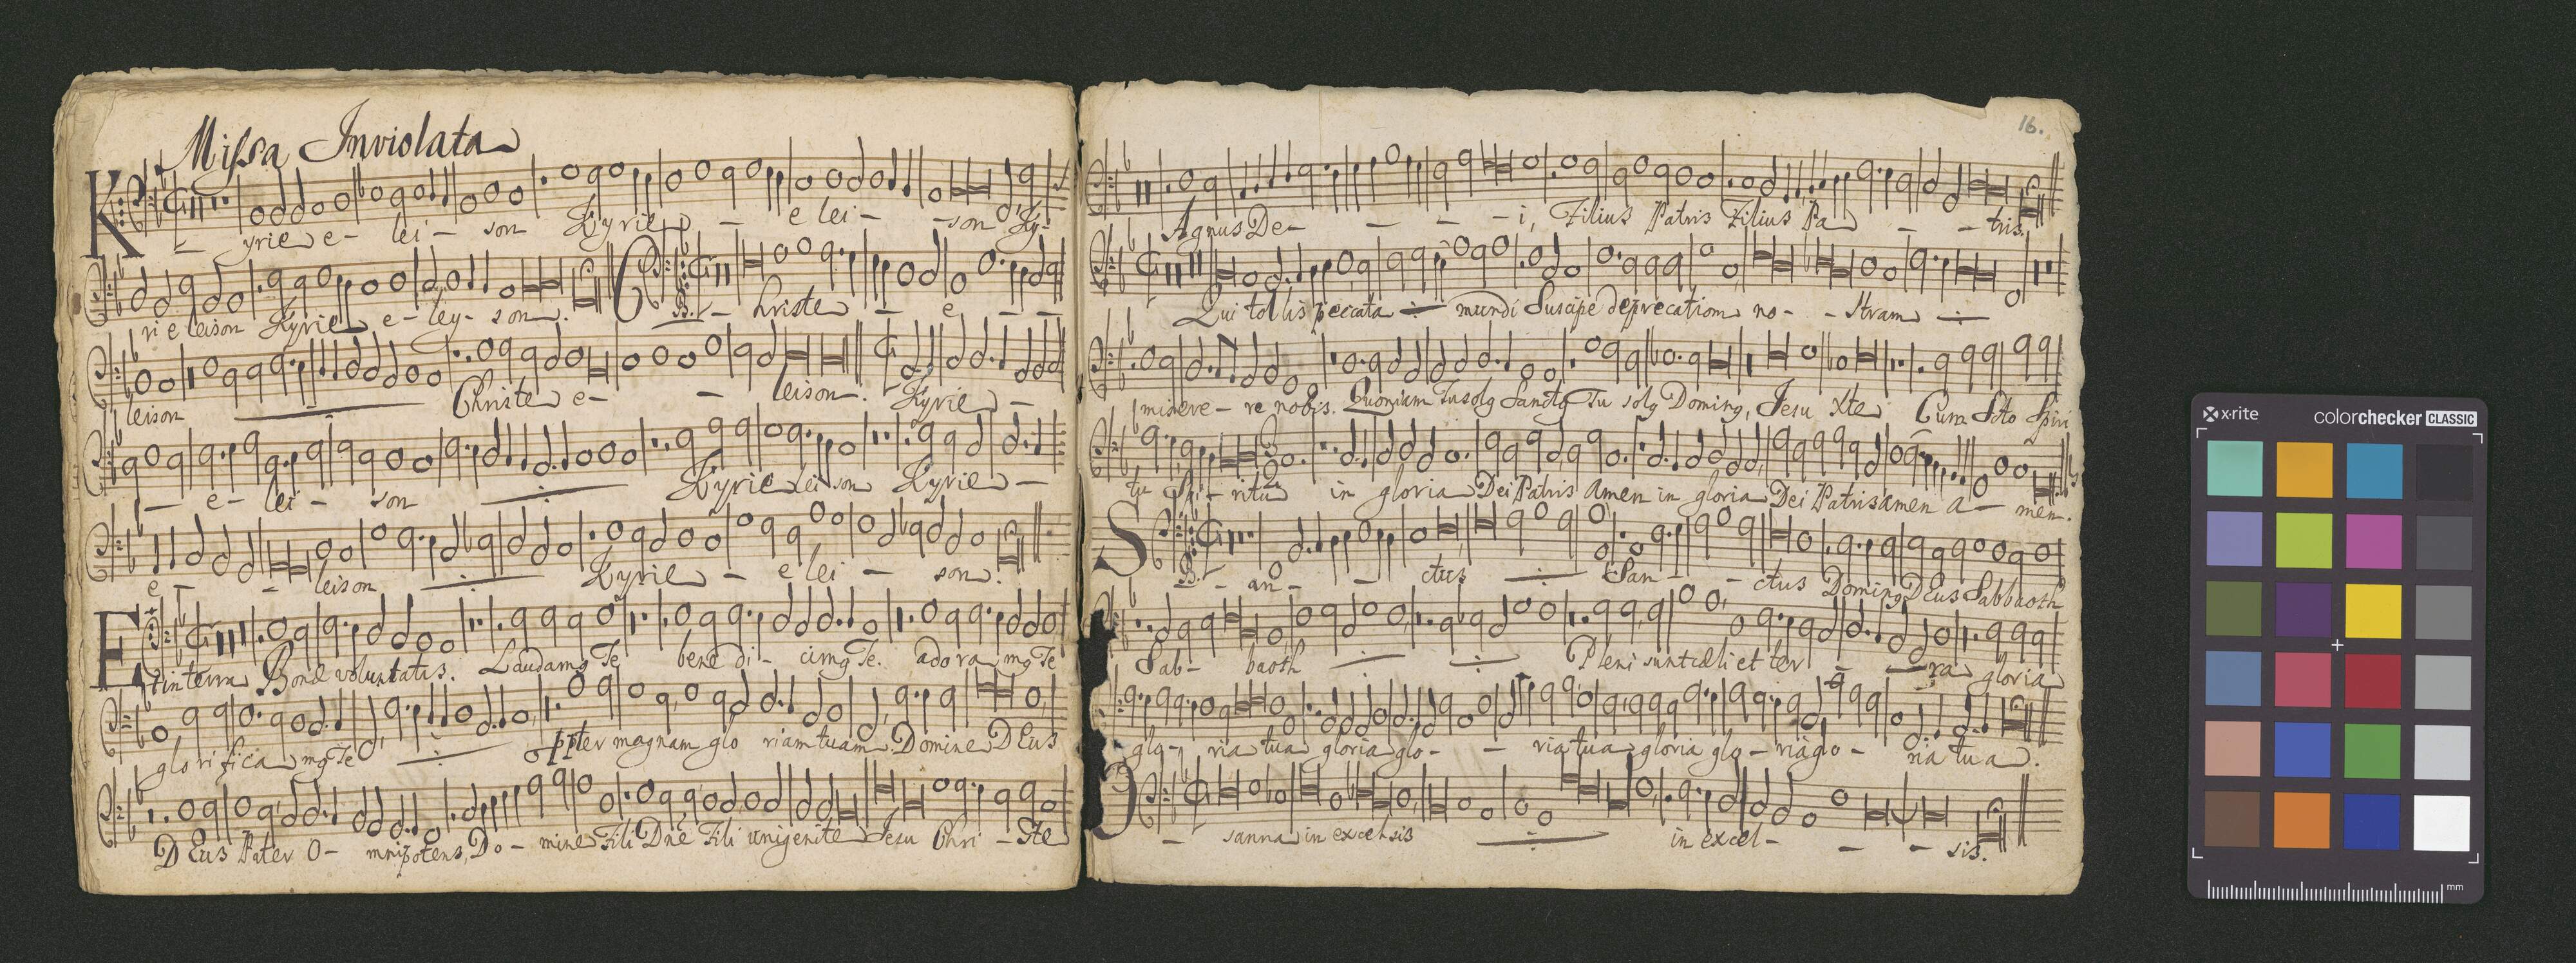 Missa Inviolata
Kyrie e- lei- son Kyrie - e lei- -son Ky-
rie leison Kyrie e-ley-son. B. - hriste - e - -
leison Christe e- - leison. Kyrie -
- e- lei- son Kyrie leison Kyrie -
e - - leison Kyrie - e lei - son.
Et in terra Bonæ voluntatis. Laudamq Te bene di- cimq Te. adoramq Te
glorificamq Te ppter magnam gloriam tuam. Domine DEus
DEus Pater O- mnipotens, Do- mine Fili Dne Fili unigenite Jesu Chri-ste
16.
Agnus De- - - -i, Filius Patris Filius Pa - -tris.
Qui tollis peccata mundi Suscipe deprecationem no- -stram
misere- re nobis. Quoniam Tu solq Sanctq Tu solq Dominq, Jesu Xte Cum Scto Spiri
tu ritu in gloria Dei Patris Amen in gloria Dei Patris amen a- men.
S B. - an- - ctus San- -ctus Dominq DEus Sabbaoth
Sab- baoth Pleni sunt cæli et ter - ra gloria
glo- ria tua gloria glo- - ria tua gloria glo- riaglo- ria tua.
- sanna in excelsis in excel- - - sis.
x-rite colorchecker CLASSIC
mm